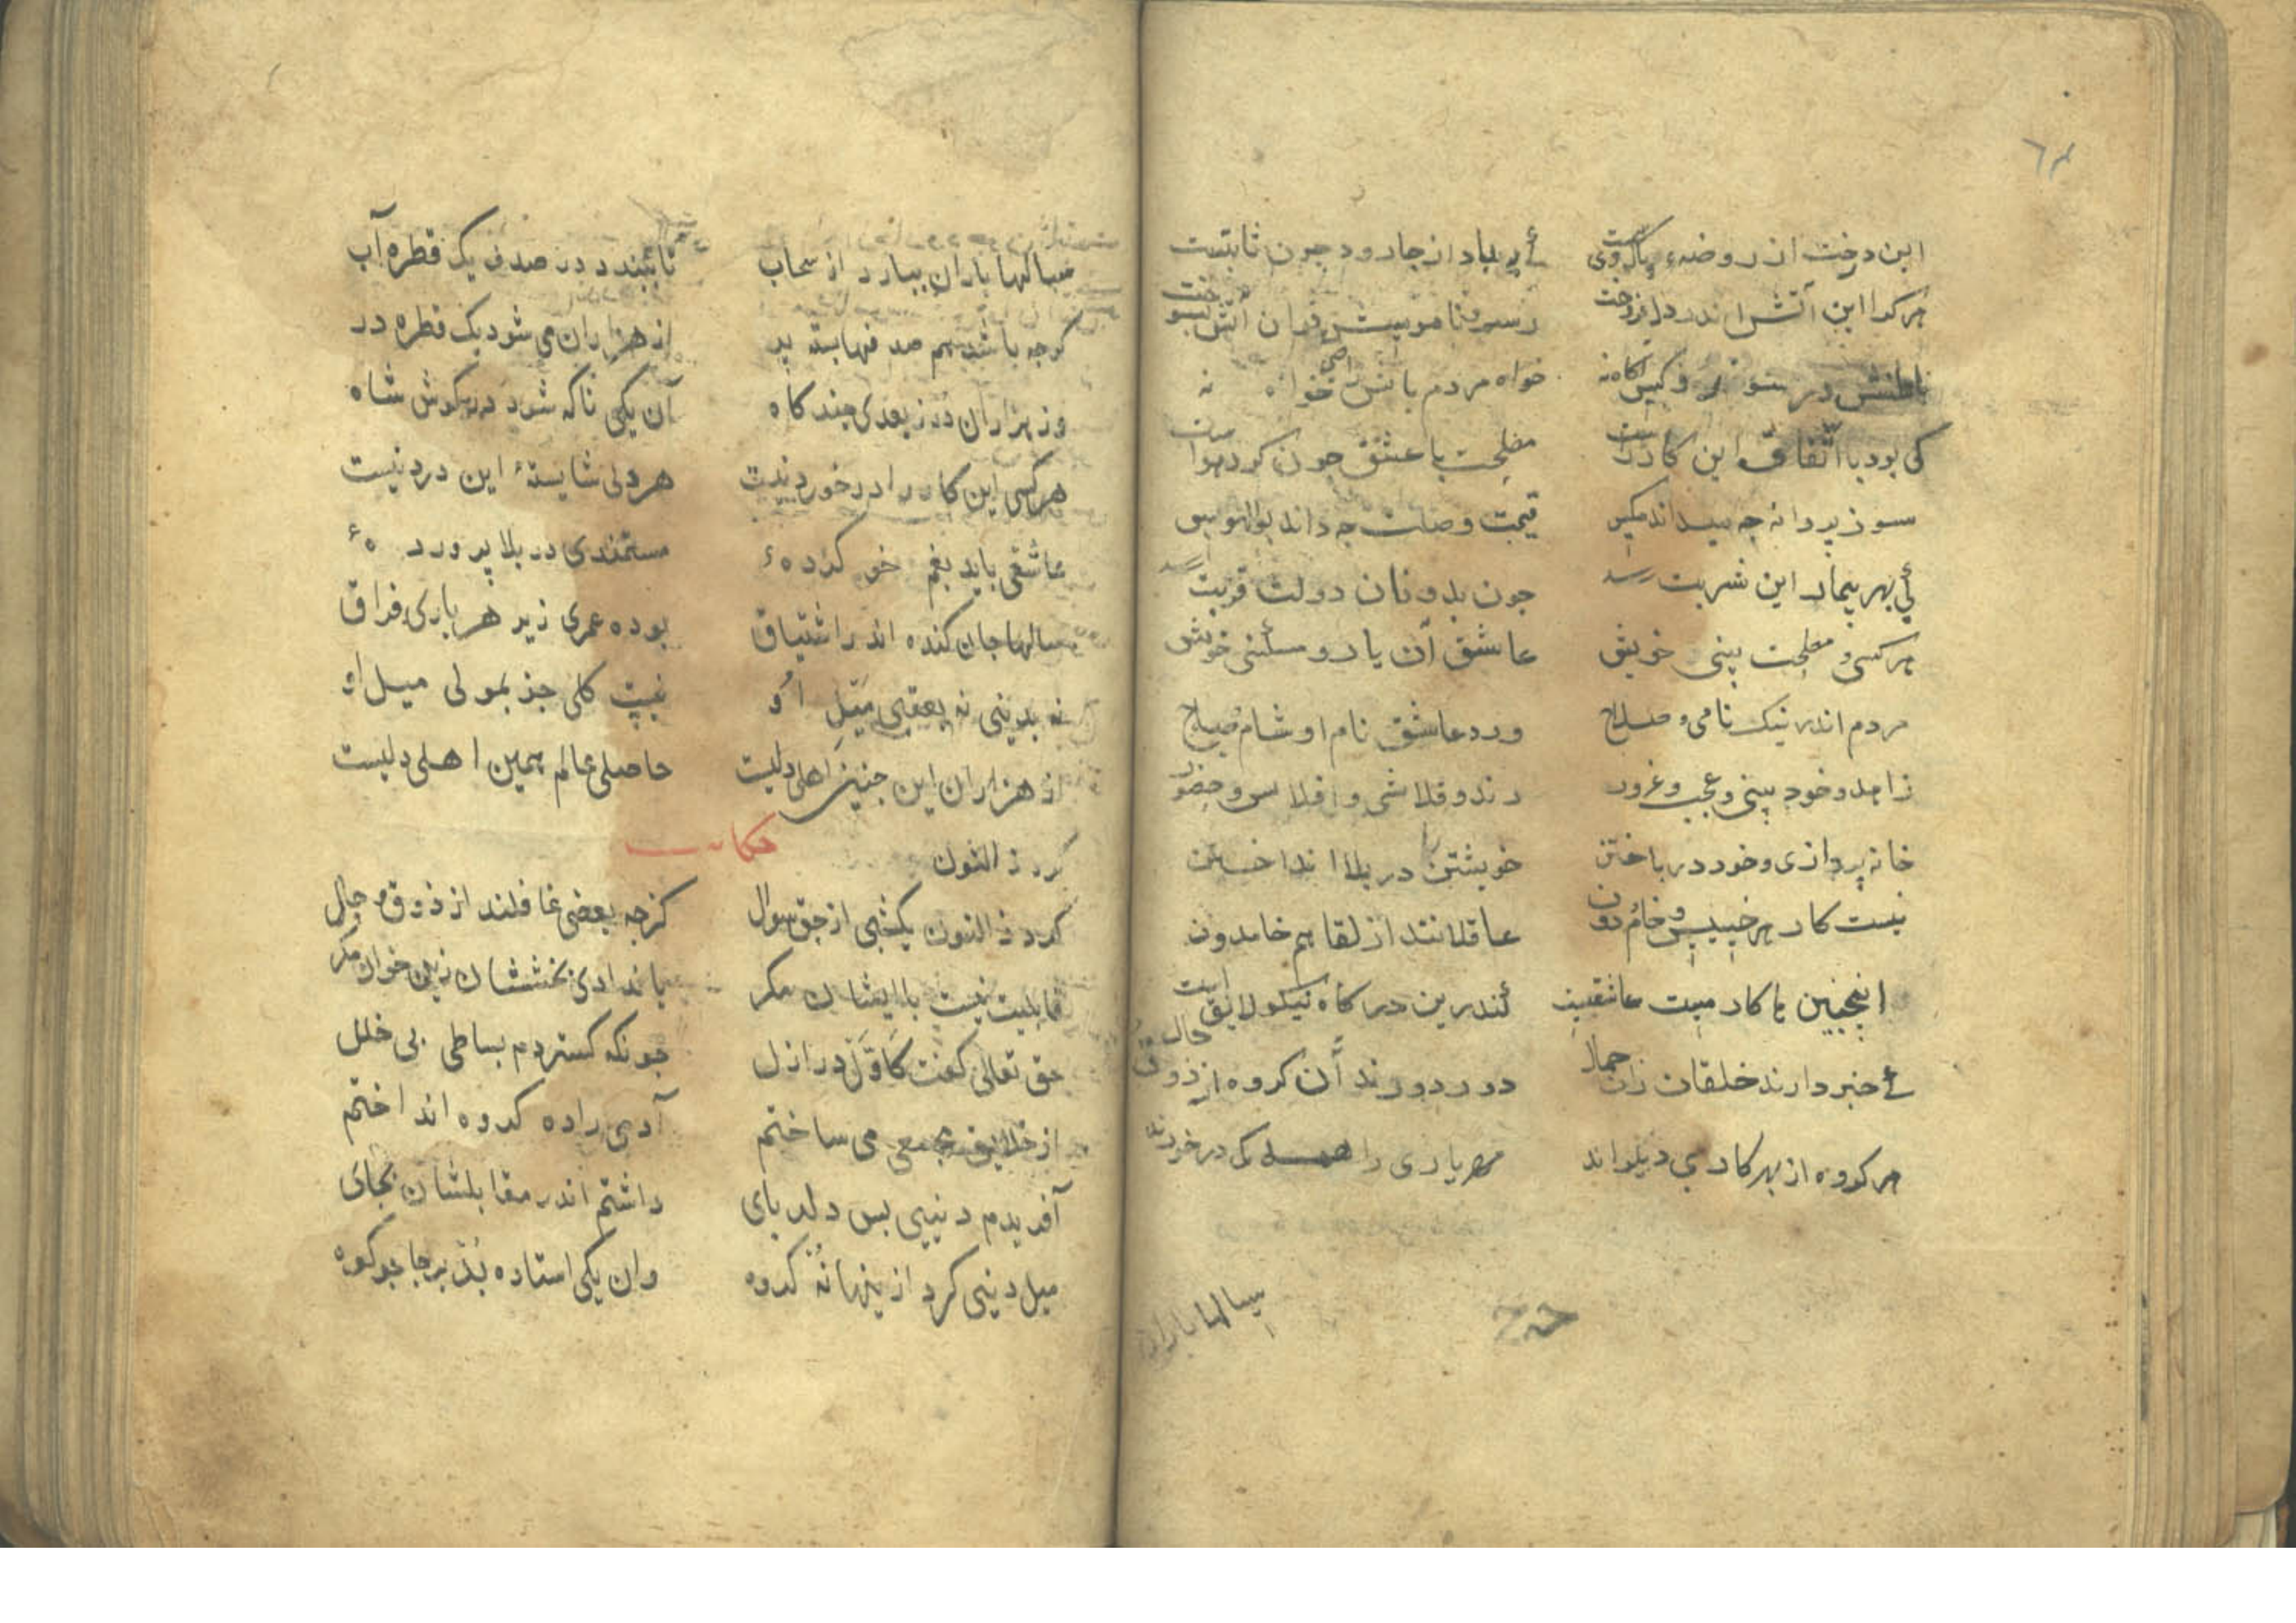 ۶۴
این درخت از روضهٔ پاک وی ست
ئے بهر باد از جا رود چون ثابتست
هر کرا این آتش اندر دل فروخت
رسم و ناموسش در ان آتش بسوخت
باطنش در سوز و کس آگاه نه
خواه مردم باش راضی خواه نه
کی بود با اتفاق این کار راست
مصلحت با عشق چون کردن هواست
سوز پروانه چه میداند مکس
قیمت وصلت چه داند بوالهوس
ئی بهر بیمار این شربت رسد
چون بدونان دولت قربت رسد
هر کسی و مصلحت بینی خویش
عاشق آن یار و مسکینی خویش
مردم اندر نیک نامی و صلاح
ورد عاشق نام او شام و صباح
زاهد و خود بینی و عجب و غرور
رند و قلاشی و افلاس و حضور
خانه پردازی و خود در باختن
خویشتن را در بلا انداختن
نیست کار هر خسیس و خام دون
عاقلانند از لقا هم خامدون
اینچنین ها کار میت عاشقیت
ئندرین درکاه نیکو لایق است
ئے خبر دارند خلقان زان جمال
دور دورند آن کروه از ذوق حال
هر کروه از بهر کاری دیکراند
هر یاری را همه کی درخورند
سالها باران
سالها باران ببارد از سحاب
تا ببندد در صدف یک قطره آب
کرچه باشد هم صدفها بسته پر
از هزاران می شود یک قطره در
وز هزاران در ز بعدی چند کاه
آن یکی تا که شود در کوش شاه
هر کسی این کار را در خورد نیست
هر دلی شایستهٔ این درد نیست
عاشقی باید بغم خو کرده ۀ
مستمندی در بلا پرورد ۀ
سالها جان کنده اندر اشتیاق
بوده عمری زیر هر باری فراق
نه بدینی نه بعقبی میل او
نیت کلی جز بمولی میل او
از هزاران این چنین اهلی دلیست
حاصلی عالم همین اهلی دلیست
کرد ذ النون حکایت
کرد ذ النون یکشبی از حق سوال
کزچه بعضی غافلند از ذوق و حال
قابلیت نیست با ایشان مکر
یا ندادی بخششان زین خوان مکر
حق تعالی کفت کاوّل در ازل
چونکه کستردم بساطی بی خلل
از خلایق مجمعی می ساختم
آدمی را ده کروه انداختم
آفریدم دنییی بس دلربای
داشتم اندر مقابلشان بجای
میل دنیی کرد از ینها نُه کروه
وان یکی استاده بُد برجا چو کوه